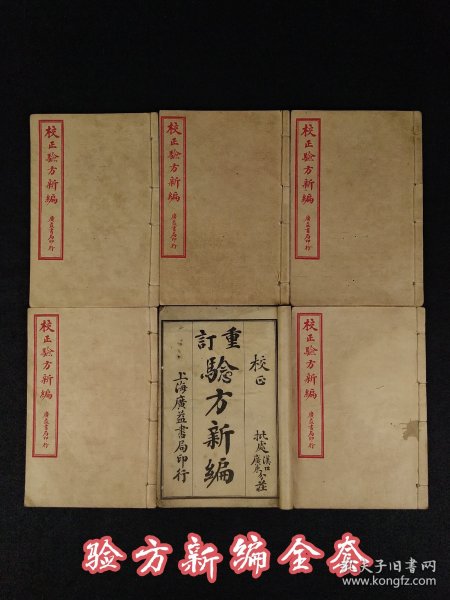 校正驗方新編
廣益書局印行
校正驗方新編
廣益書局印行
校正驗方新編
廣益書局印行
校正驗方新編
廣益書局印行
重訂
驗方新編
校正
批處
漢口
廣東
分莊
上海廣益書局印行
校正驗方新編
廣益書局印行
验方新编全套
孔夫子旧书网
www.kongfz.com